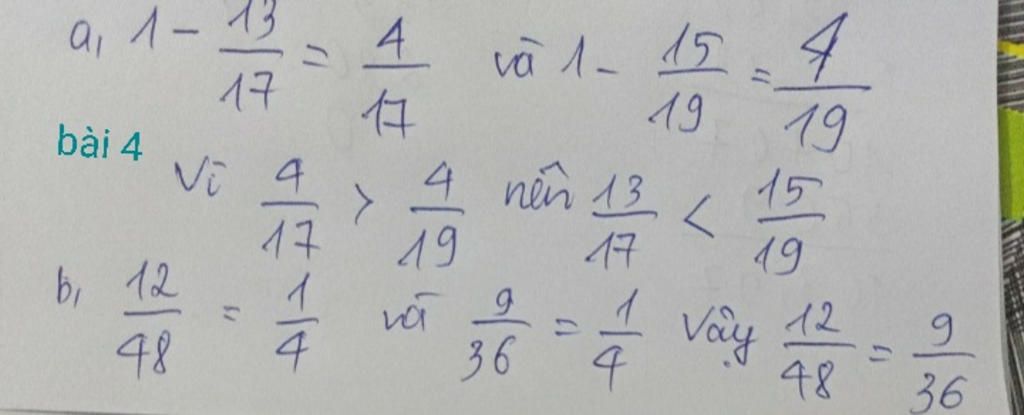 a, 1 - 13/17 = 4/17 và 1 - 15/19 = 4/19
bài 4
Vì 4/17 > 4/19 nên 13/17 < 15/19
b, 12/48 = 1/4 và 9/36 = 1/4 Vậy 12/48 = 9/36